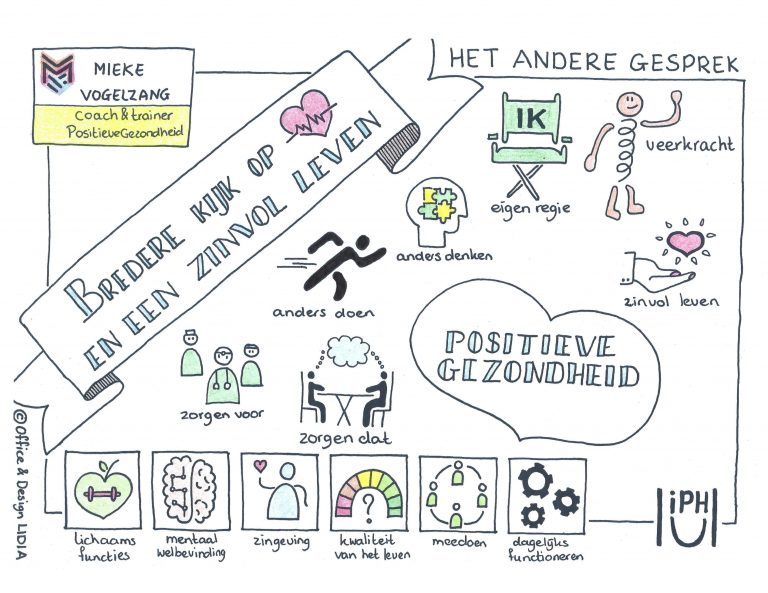 HET ANDERE GESPREK
MIEKE
VOGELZANG
Coach & trainer
Positieve Gezondheid
BREDERE KIJK OP
EN EEN ZINVOL LEVEN
IK
eigen regie
veerkracht
anders denken
zinvol leven
anders doen
POSITIEVE
GEZONDHEID
zorgen voor
zorgen dat
©Office & Design LIDIA
lichaams
functies
mentaal
welbevinding
zingeving
?
kwaliteit
van het leven
meedoen
dagelijks
functioneren
iPH